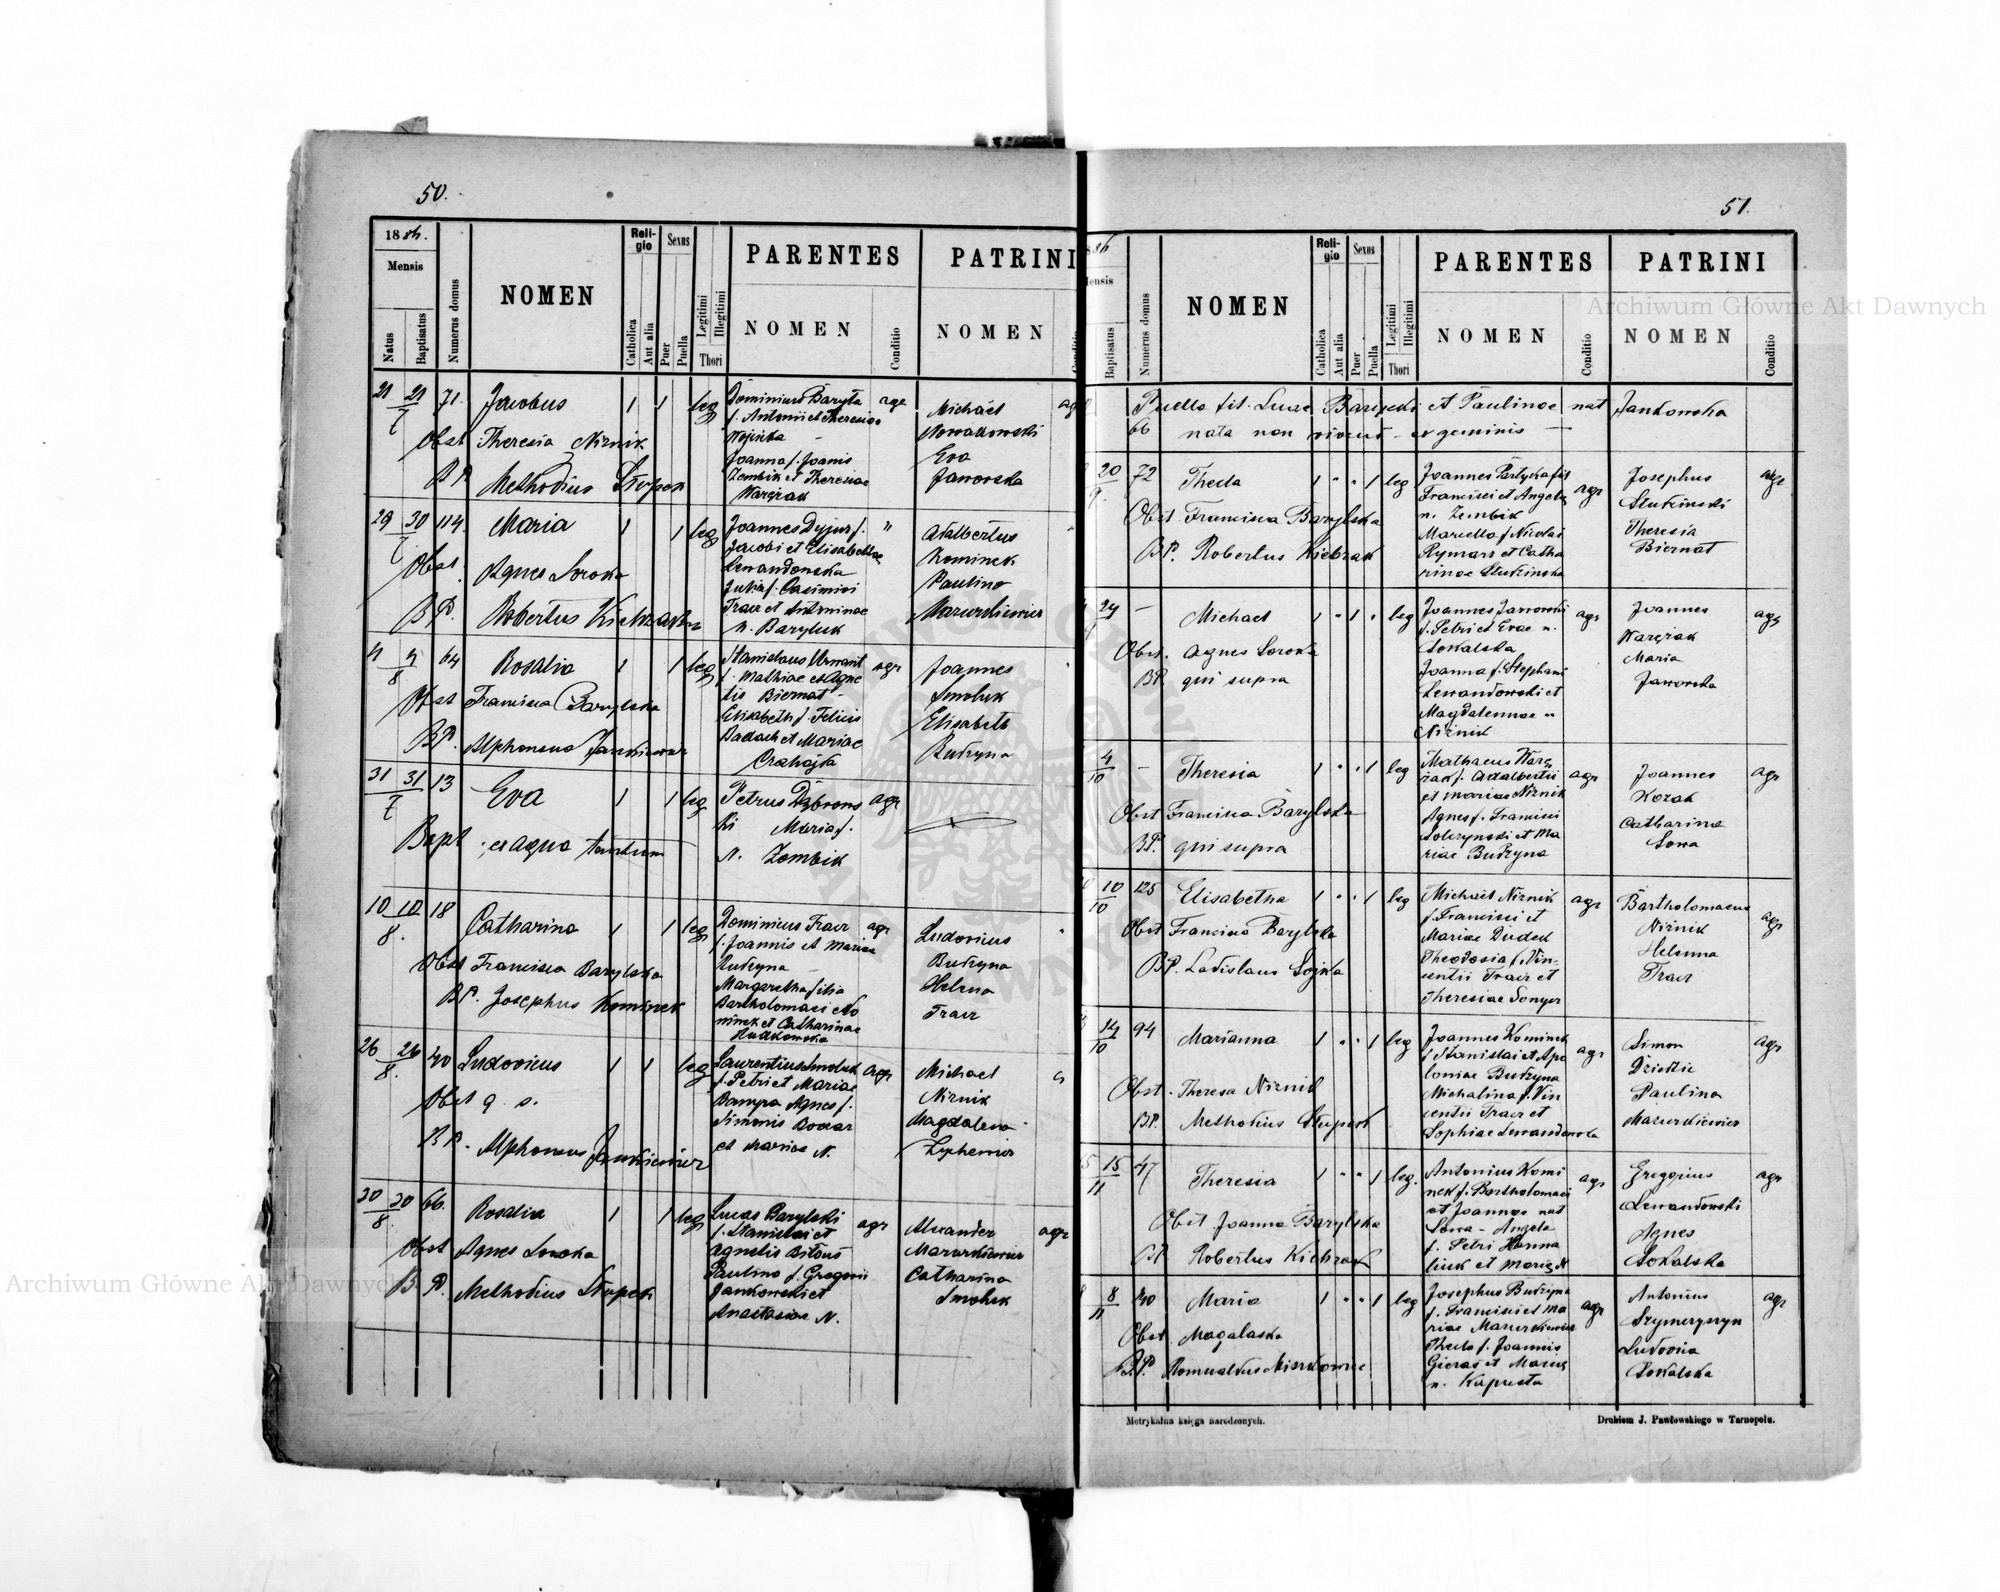 50.
1886.
Mensis
Natus
Baptisatus
Numerus domus
NOMEN
Religio
Catholica
Aut alia
Sexus
Puer
Puella
Legitimi
Illegitimi
Thori
PARENTES
NOMEN
Conditio
PATRINI
NOMEN
21 21/7 71 Jacobus 1 1 leg
Obst Theresia Niznik
BP. Methodius Slupek
Dominicus Baryla agr
f. Antonii et Theresiae
Joanna f. Joanis
Zembik et Theresiae
Wargzak
Michael
Nowakowski
Eva
Jaworska
29 30/7 114. Maria 1 1 leg
Obst. Agnes Soroka
B.P. Robertus Kiebzak
Joannes Dyjur f. "
Jacobi et Elisabethae
Lewandowska
Julia f. Casimiri
Tracz et Antoninae
n. Baryluk
Adalbertus
Kominek
Paulina
Mazurkiewicz
4 4/8 64 Rosalia 1 1 leg
Obst Francisca Barylska
BP. Alphonsus Jankiewicz
Stanislaus agr
f. Mathiae et Agne
tis Biernat -
Elisabeth f. Felicis
Badach et Mariae
Joannes
Smoluk
Elisabeth
Budzyna
31 31/7 13 Eva 1 1 leg
Bapt. ex aqua tantum
Petrus Dąbrows agr
ki Maria f.
N. Zembik
10 10/8. 18 Catharina 1 1 leg
Obst Francisca Barylska
BP. Josephus Kominek
Dominicus Tracz agr
f. Joannis et Mariae
Budzyna
Margaretha filia
Bartholomaei Ko
minek et Catharinae
Rutkowska
Ludovicus
Budzyna
Helena
Tracz
26 26/8. 40 Ludovicus 1 1 leg
Obst q. s.
BP. Alphonsus Jankiewicz
Laurentius Smoluk agr
f. Petri et Mariae
Agnes f.
Simonis
et Mariae N.
Michael
Niznik
Magdalena
30 30/8. 66. Rosalia 1 1 leg
Obst Agnes Soroka
B.P. Methodius Slupek
Lucas Barylski agr
f. Stanislai et
Agnetis
Paulina f. Gregorii
Jankowski et
Anastasiae N.
Alexander agr
Mazurkiewicz
Catharina
Smoluk
51.
86
Mensis
Baptisatus
Numerus domus
NOMEN
Religio
Catholica
Aut alia
Sexus
Puer
Puella
Legitimi
Illegitimi
Thori
PARENTES
NOMEN
Conditio
PATRINI
NOMEN
Conditio
Puella fil. Lucae Barylski et Paulinae nat Jankowska
66 nata non vivens - ex geminis -
20/9. 72 Thecla 1 " " 1 leg
Obst. Francisca Barylska
BP. Robertus Kiebzak
Joannes Partyka fil agr
Francisci et Angela
n. Zembik
Marcella f. Nicolai
Rymarz et Catha
rinae
Josephus agr
Theresia
Biernat
24 - Michael 1 " 1 " leg
Obst. Agnes Soroka
BP. qui supra
Joannes Jaworski agr
f. Petri et Evae n.
Sokalska
Joanna f. Stephani
Lewandowski et
Magdalenae n
Niznik
Joannes agr
Wargzak
Maria
Jaworska
4/10 - Theresia 1 " " 1 leg
Obst Francisca Barylska
BP. qui supra
Mathaeus Warg agr
zak f. Adalberti
et Mariae Niznik
Agnes f. Francisci
et Ma
riae Budzyna
Joannes agr
Kozak
Catharina
Sowa
10/10 125 Elisabetha 1 " " 1 leg
Obst Francisca Barylska
BP. Ladislaus Sojka
Michael Niznik agr
f. Francisci et
Mariae Dudek
Theodosia f. Vin-
centii Tracz et
Theresiae
Bartholomaeus agr
Niznik
Helenna
Tracz
14/10 94 Marianna 1 " " 1 leg
Obst. Theresa Niznik
BP. Methodius Slupek
Joannes Kominek agr
f. Stanislai et Apo
loniae Budzyna
Michalina f. Vin
centii Tracz et
Sophiae Lewandowska
Simon agr
Dziedzic
Paulina
Mazurkiewicz
15/11 47 Theresia 1 " " 1 leg.
Obst. Joanna Barylska
BP. Robertus Kiebzak
Antonius Komi agr
nek f. Bartholomaei
et Joannae nat
Sowa - Angela
f. Petri Hanna
liuk et Mariae N
Gregorius agr
Lewandowski
Agnes
Sokalska
8/11 40 Maria 1 " " 1 leg
Obst Magalaska
B.P. Romualdus
Josephus Budzyna agr
f. Francisci et Ma
riae Mazurkiewicz
Thecla f. Joannis
Gieras et Mariae
n. Kapusta
Antonius agr
Ludovica
Sokalska
Metrykalna księga narodzonych.
Drukiem J. Pawłowskiego w Tarnopolu.
Archiwum Główne Akt Dawnych
Archiwum Główne Akt Dawnych